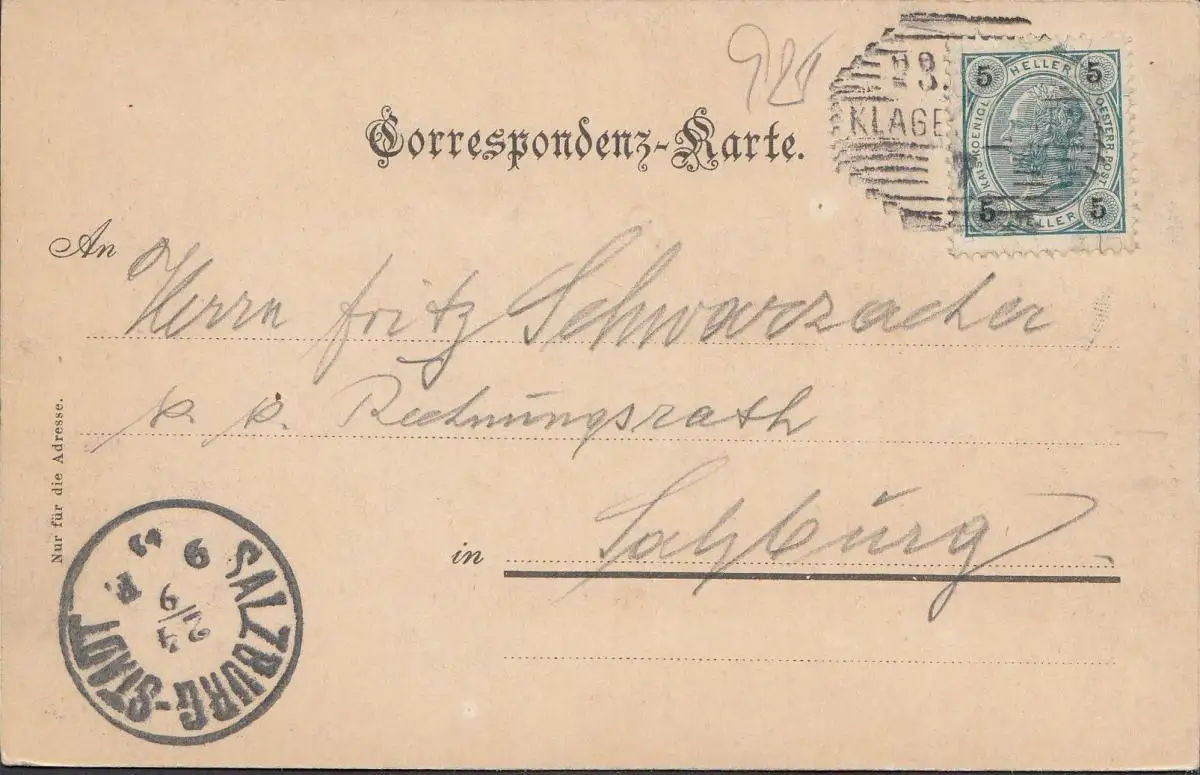 925
23.
KLAGE
5 HELLER 5
KAIS. KOENIGL. OESTERR. POST
5 HELLER 5
Correspondenz-Karte.
An Herrn Fritz Schwarzacher
k. k. Rechnungsrath
in Salzburg
Nur für die Adresse.
SALZBURG-STADT
9
24/9